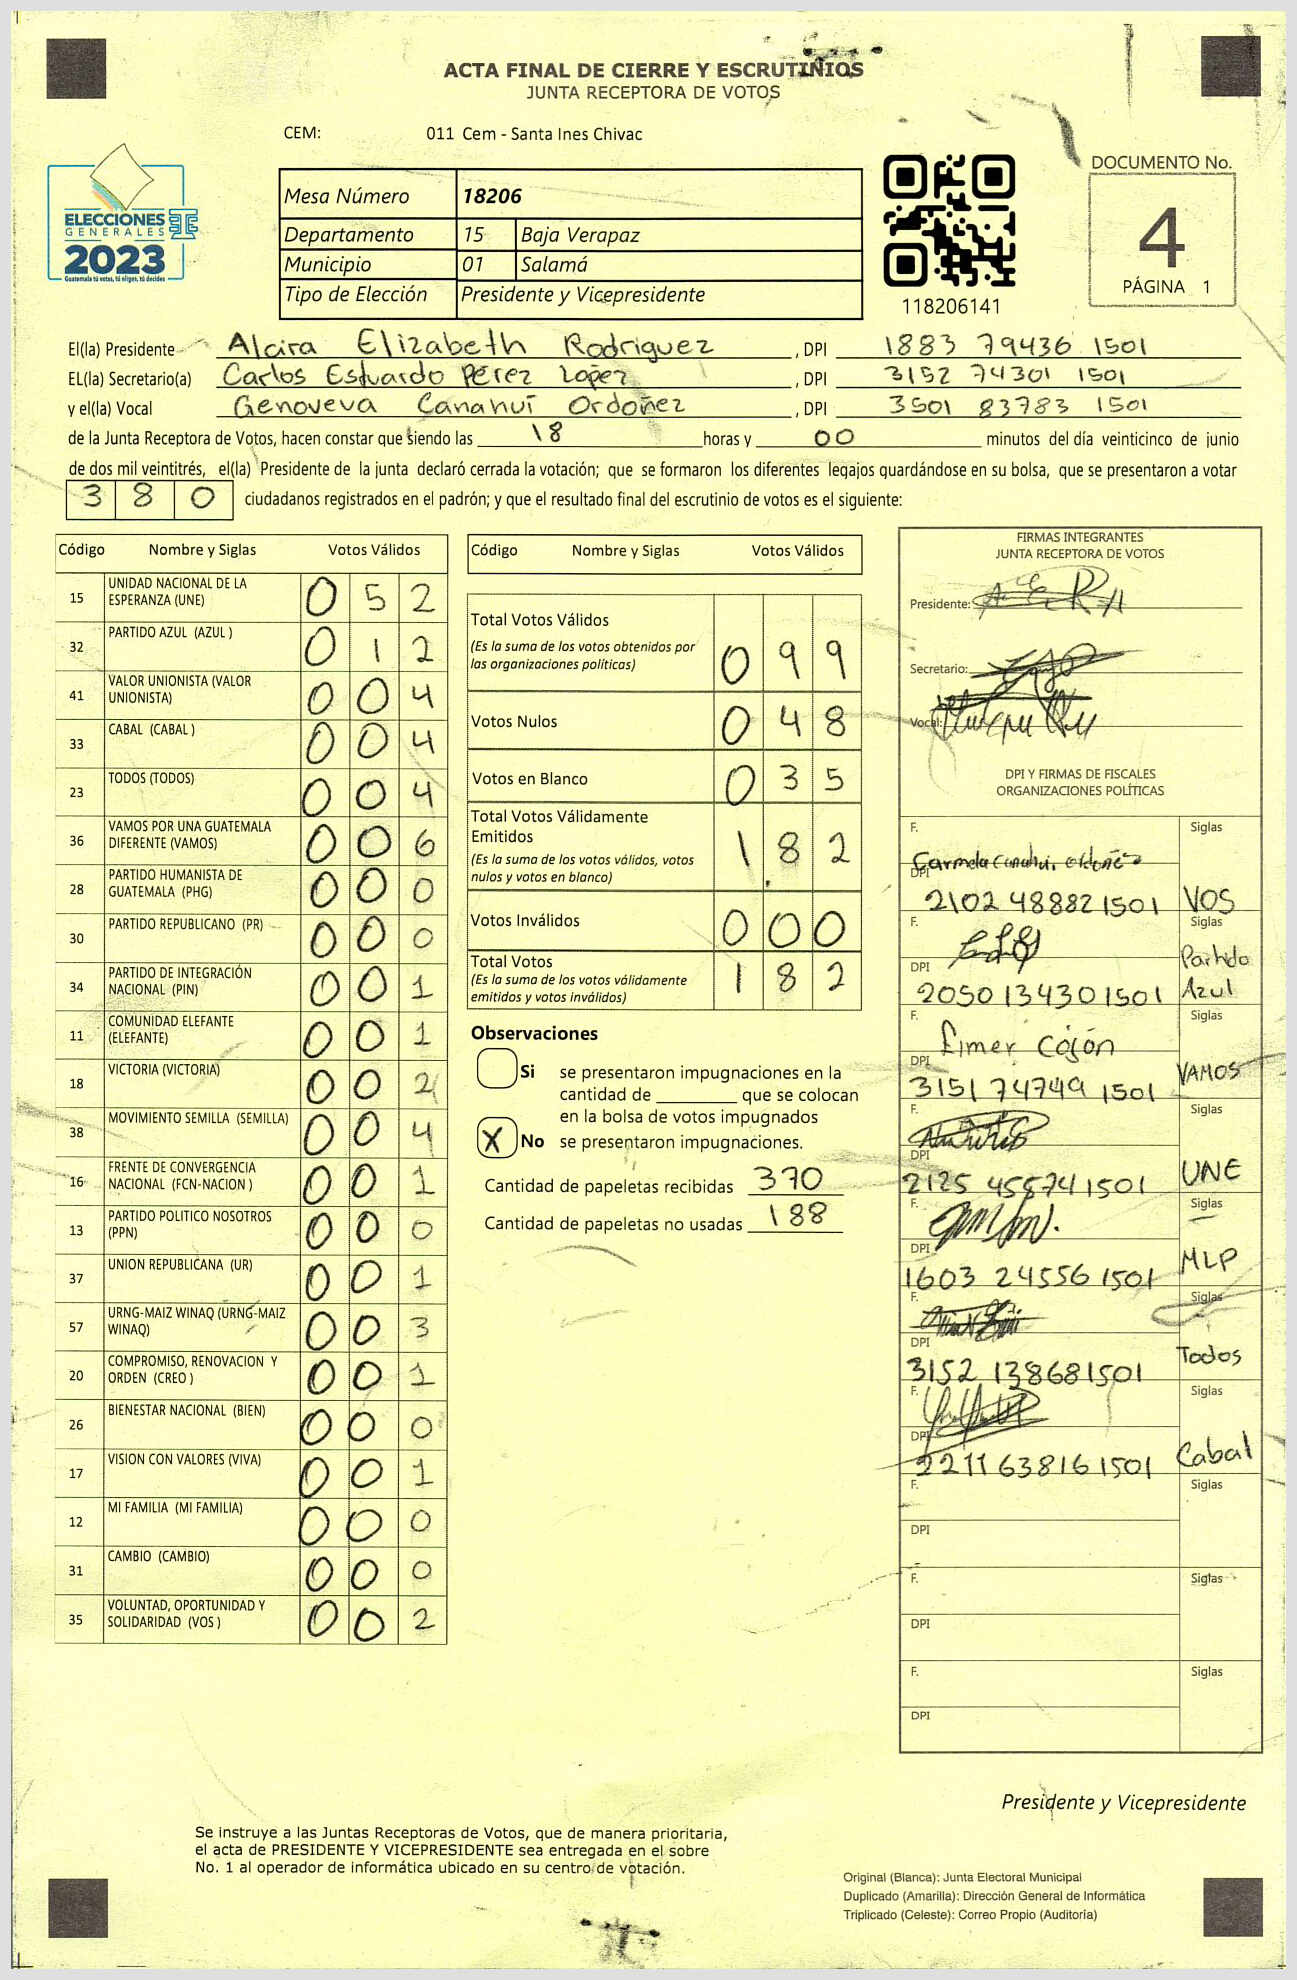 ACTA FINAL DE CIERRE Y ESCRUTINIOS
JUNTA RECEPTORA DE VOTOS
CEM: 011 Cem - Santa Ines Chivac
ELECCIONES
GENERALES
2023
Guatemala tú votas, tú eliges, tú decides
Mesa Número 18206
Departamento 15 Baja Verapaz
Municipio 01 Salamá
Tipo de Elección Presidente y Vicepresidente
118206141
DOCUMENTO No.
4
PÁGINA 1
El(la) Presidente Alcira Elizabeth Rodriguez , DPI 1883 79436 1501
EL(la) Secretario(a) Carlos Estuardo Pérez López , DPI 3152 74301 1501
y el(la) Vocal Genoveva Canahuí Ordoñez , DPI 3501 83783 1501
de la Junta Receptora de Votos, hacen constar que siendo las 18 horas y 00 minutos del día veinticinco de junio
de dos mil veintitrés, el(la) Presidente de la junta declaró cerrada la votación; que se formaron los diferentes legajos guardándose en su bolsa, que se presentaron a votar
380 ciudadanos registrados en el padrón; y que el resultado final del escrutinio de votos es el siguiente:
Código Nombre y Siglas Votos Válidos
15 UNIDAD NACIONAL DE LA ESPERANZA (UNE) 0 5 2
32 PARTIDO AZUL (AZUL ) 0 1 2
41 VALOR UNIONISTA (VALOR UNIONISTA) 0 0 4
33 CABAL (CABAL ) 0 0 4
23 TODOS (TODOS) 0 0 4
36 VAMOS POR UNA GUATEMALA DIFERENTE (VAMOS) 0 0 6
28 PARTIDO HUMANISTA DE GUATEMALA (PHG) 0 0 0
30 PARTIDO REPUBLICANO (PR) 0 0 0
34 PARTIDO DE INTEGRACIÓN NACIONAL (PIN) 0 0 1
11 COMUNIDAD ELEFANTE (ELEFANTE) 0 0 1
18 VICTORIA (VICTORIA) 0 0 2
38 MOVIMIENTO SEMILLA (SEMILLA) 0 0 4
16 FRENTE DE CONVERGENCIA NACIONAL (FCN-NACION ) 0 0 1
13 PARTIDO POLITICO NOSOTROS (PPN) 0 0 0
37 UNION REPUBLICANA (UR) 0 0 1
57 URNG-MAIZ WINAQ (URNG-MAIZ WINAQ) 0 0 3
20 COMPROMISO, RENOVACION Y ORDEN (CREO ) 0 0 1
26 BIENESTAR NACIONAL (BIEN) 0 0 0
17 VISION CON VALORES (VIVA) 0 0 1
12 MI FAMILIA (MI FAMILIA) 0 0 0
31 CAMBIO (CAMBIO) 0 0 0
35 VOLUNTAD, OPORTUNIDAD Y SOLIDARIDAD (VOS ) 0 0 2
Código Nombre y Siglas Votos Válidos
Total Votos Válidos 0 9 9
(Es la suma de los votos obtenidos por
las organizaciones políticas)
Votos Nulos 0 4 8
Votos en Blanco 0 3 5
Total Votos Válidamente
Emitidos 1 8 2
(Es la suma de los votos válidos, votos
nulos y votos en blanco)
Votos Inválidos 0 0 0
Total Votos 1 8 2
(Es la suma de los votos válidamente
emitidos y votos inválidos)
Observaciones
Si se presentaron impugnaciones en la
cantidad de ________ que se colocan
en la bolsa de votos impugnados
X No se presentaron impugnaciones.
Cantidad de papeletas recibidas 370
Cantidad de papeletas no usadas 188
FIRMAS INTEGRANTES
JUNTA RECEPTORA DE VOTOS
Presidente:
Secretario:
Vocal:
DPI Y FIRMAS DE FISCALES
ORGANIZACIONES POLÍTICAS
F. Carmela Canahuí Ordoñez Siglas
DPI 2102 48882 1501 VOS
F. Siglas
DPI 2050 13430 1501 Partido Azul
F. Elmer Cojón Siglas
DPI 3151 74749 1501 VAMOS
F. Siglas
DPI 2125 45874 1501 UNE
F. Siglas
DPI 1603 24556 1501 MLP
F. Siglas
DPI 3152 13868 1501 Todos
F. Siglas
DPI 2211 63816 1501 Cabal
F. Siglas
DPI
F. Siglas
DPI
F. Siglas
DPI
Presidente y Vicepresidente
Se instruye a las Juntas Receptoras de Votos, que de manera prioritaria,
el acta de PRESIDENTE Y VICEPRESIDENTE sea entregada en el sobre
No. 1 al operador de informática ubicado en su centro de votación.
Original (Blanca): Junta Electoral Municipal
Duplicado (Amarilla): Dirección General de Informática
Triplicado (Celeste): Correo Propio (Auditoría)